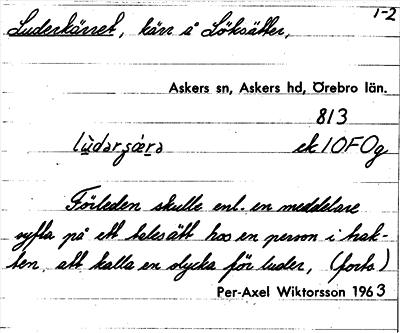 1-2
Luderkärret, kärr å Löksätter,
Askers sn, Askers hd, Örebro län.
813
ek 10F0g
Förleden skulle enl. en meddelare
syfta på ett talesätt hos en person i trak-
ten, att kalla en slycka för luder, (forts)
Per-Axel Wiktorsson 1963